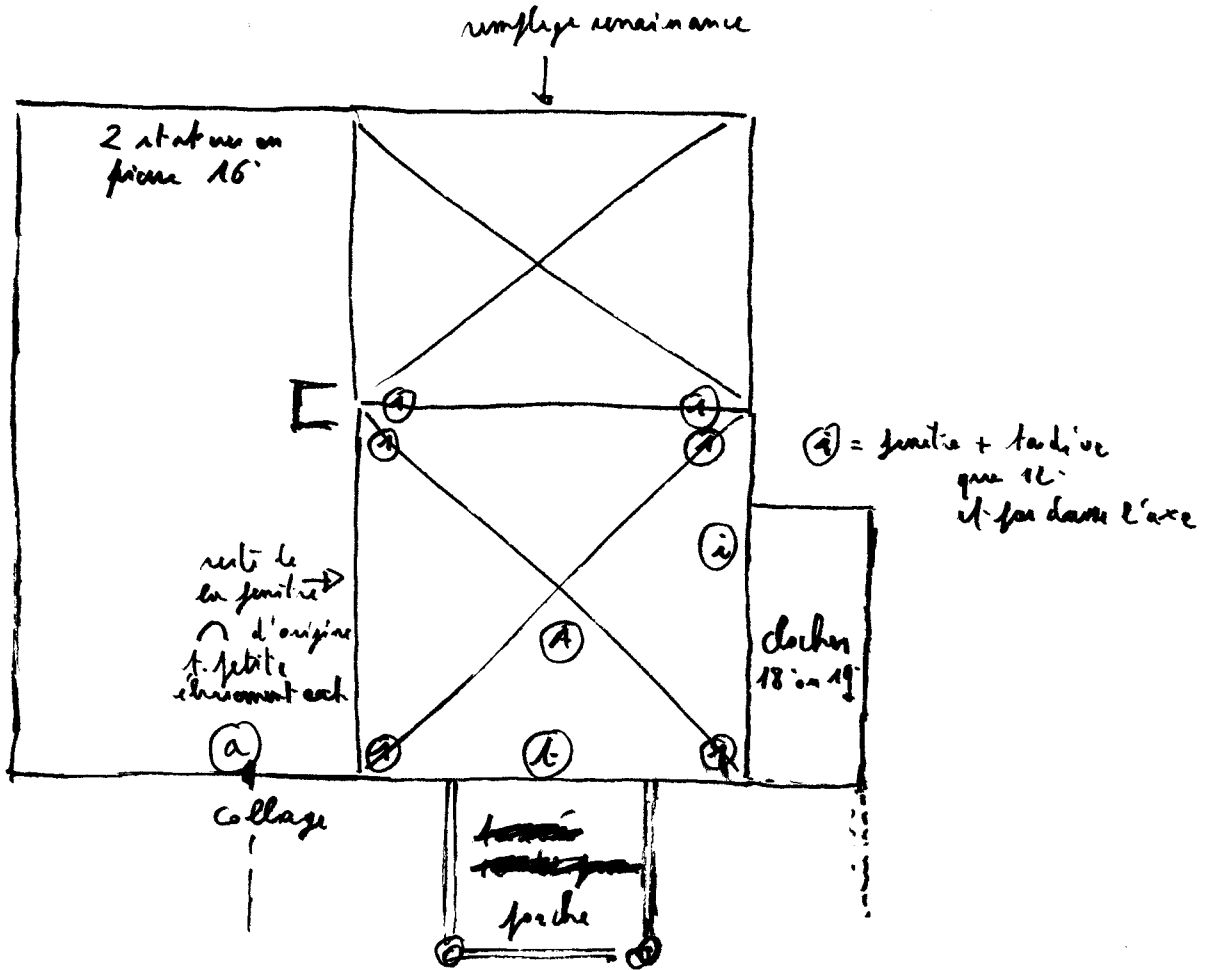 remplage renaissance
2 statues en
pierre 16e
1
1
1
1
i = fenêtre + tardive
que 12e
et pas dans l'axe
i
reste de
la fenêtre
d'origine
t. petite
ébrasement
A
clocher
18e ou 19e
a
1
t
collage
porche